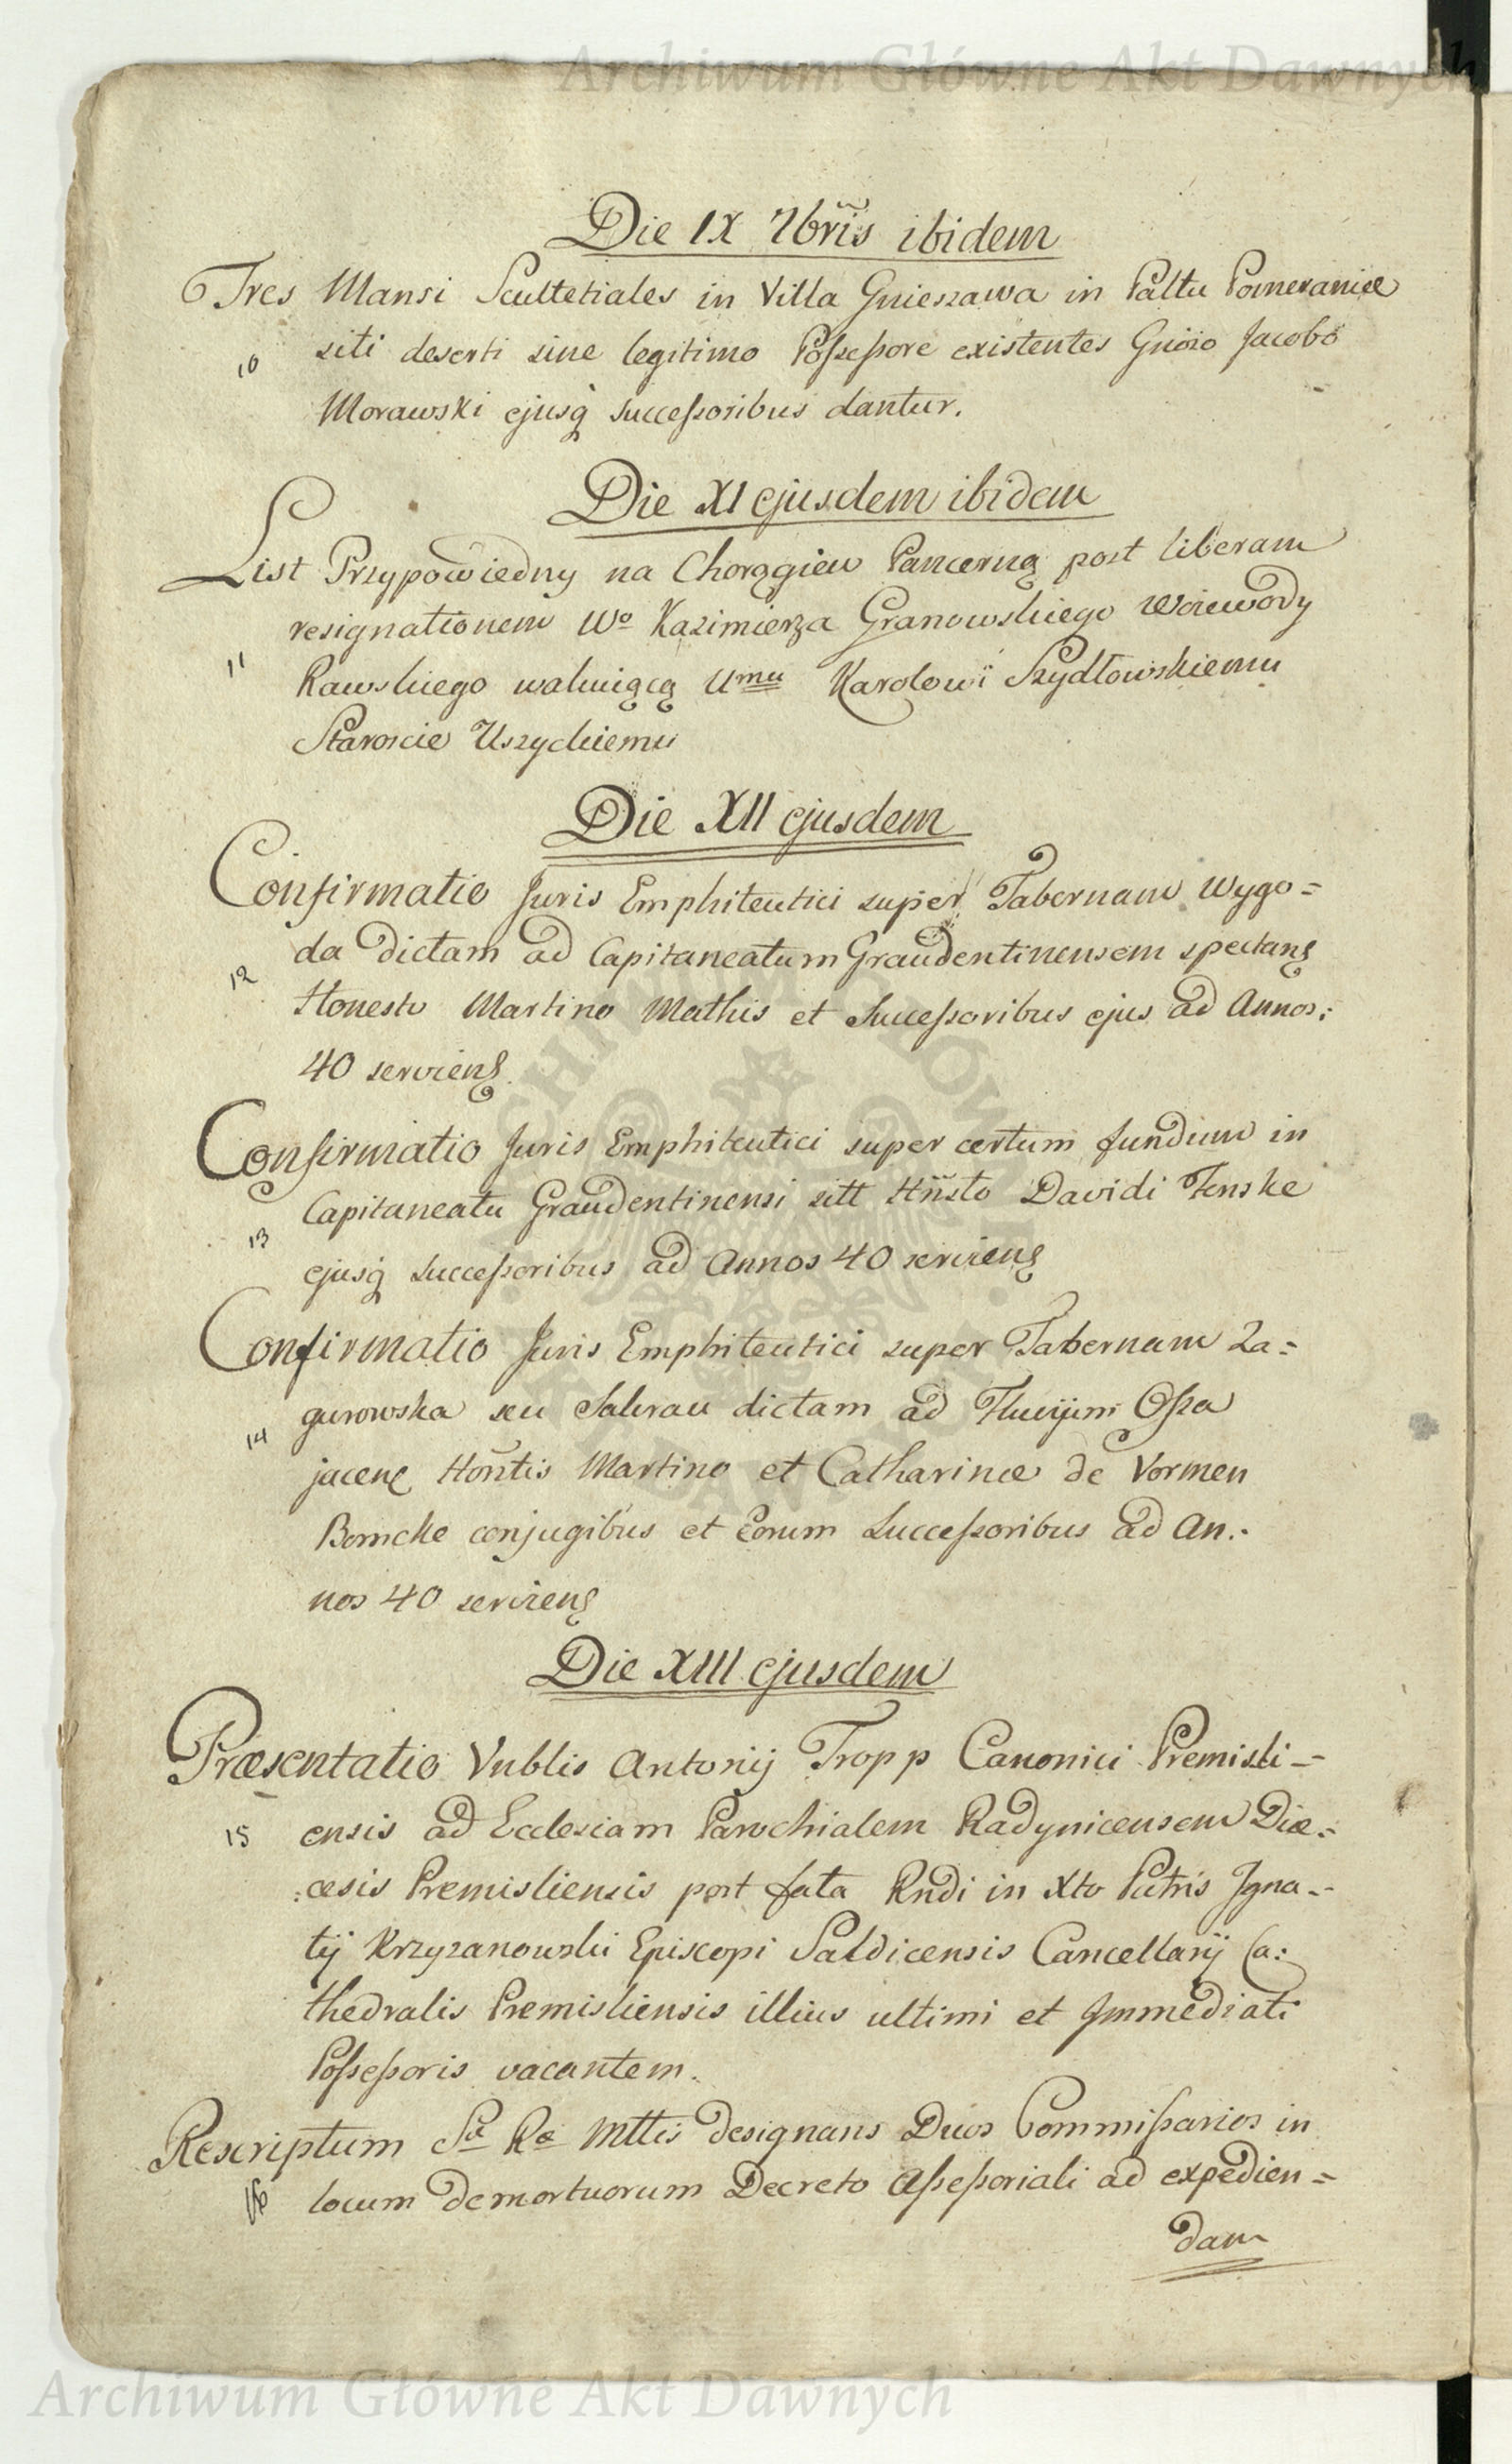 Archiwum Główne Akt Dawnych
Die IX 7bris ibidem
Tres Mansi Scultetiales in Villa Gnieszawa in Pałtu Pomeraniæ
10 siti deserti sine legitimo Possessore existentes Gnoso Jacobo
Morawski ejusq successoribus dantur.
Die XI ejusdem ibidem
List Przypowiedny na Chorągiew Pancerną post liberam
resignationem Wo Kazimierza Granowskiego Woiewody
11 Rawskiego waluiącą Umu Karolowi Szydłowskiemu
Staroscie Uszyckiemu
Die XII ejusdem
Confirmatio Juris Emphiteutici super Tabernam Wygo=
da dictam ad Capitaneatum Graudentinensem spectanę
12 Honesto Martino Mathis et Successoribus ejus ad Annos:
40 servienę
Confirmatio Juris Emphiteutici super certum fundum in
Capitaneatu Graudentinensi sitt Hnsto Davidi Fenske
13 ejusq successoribus ad Annos 40 servienę
Confirmatio Juris Emphiteutici super Tabernam Za=
gurowska seu Salurau dictam ad Fluvijm Ossa
14 jacenę Hontis Martino et Catharinæ de Vormen
Bomcke conjugibus et Eorum Successoribus ad An:
nos 40 servienę
Die XIII ejusdem
Præsentatio Vnblis Antonij Tropp Canonici Premisli-
15 ensis ad Ecclesiam Parochialem Radynicensem Diæ=
:cesis Premisliensis post fata Rndi in Xto Patris Igna-
tij Krzyzanowski Episcopi Saldicensis Cancellarij Ca:
thedralis Premisliensis illius ultimi et Immediati
Possessoris vacantem.
Rescriptum Sæ Ræ Mttis designans Duos Commissarios in
16 locum demortuorum Decreto Assessoriali ad expedien=
dam
Archiwum Główne Akt Dawnych